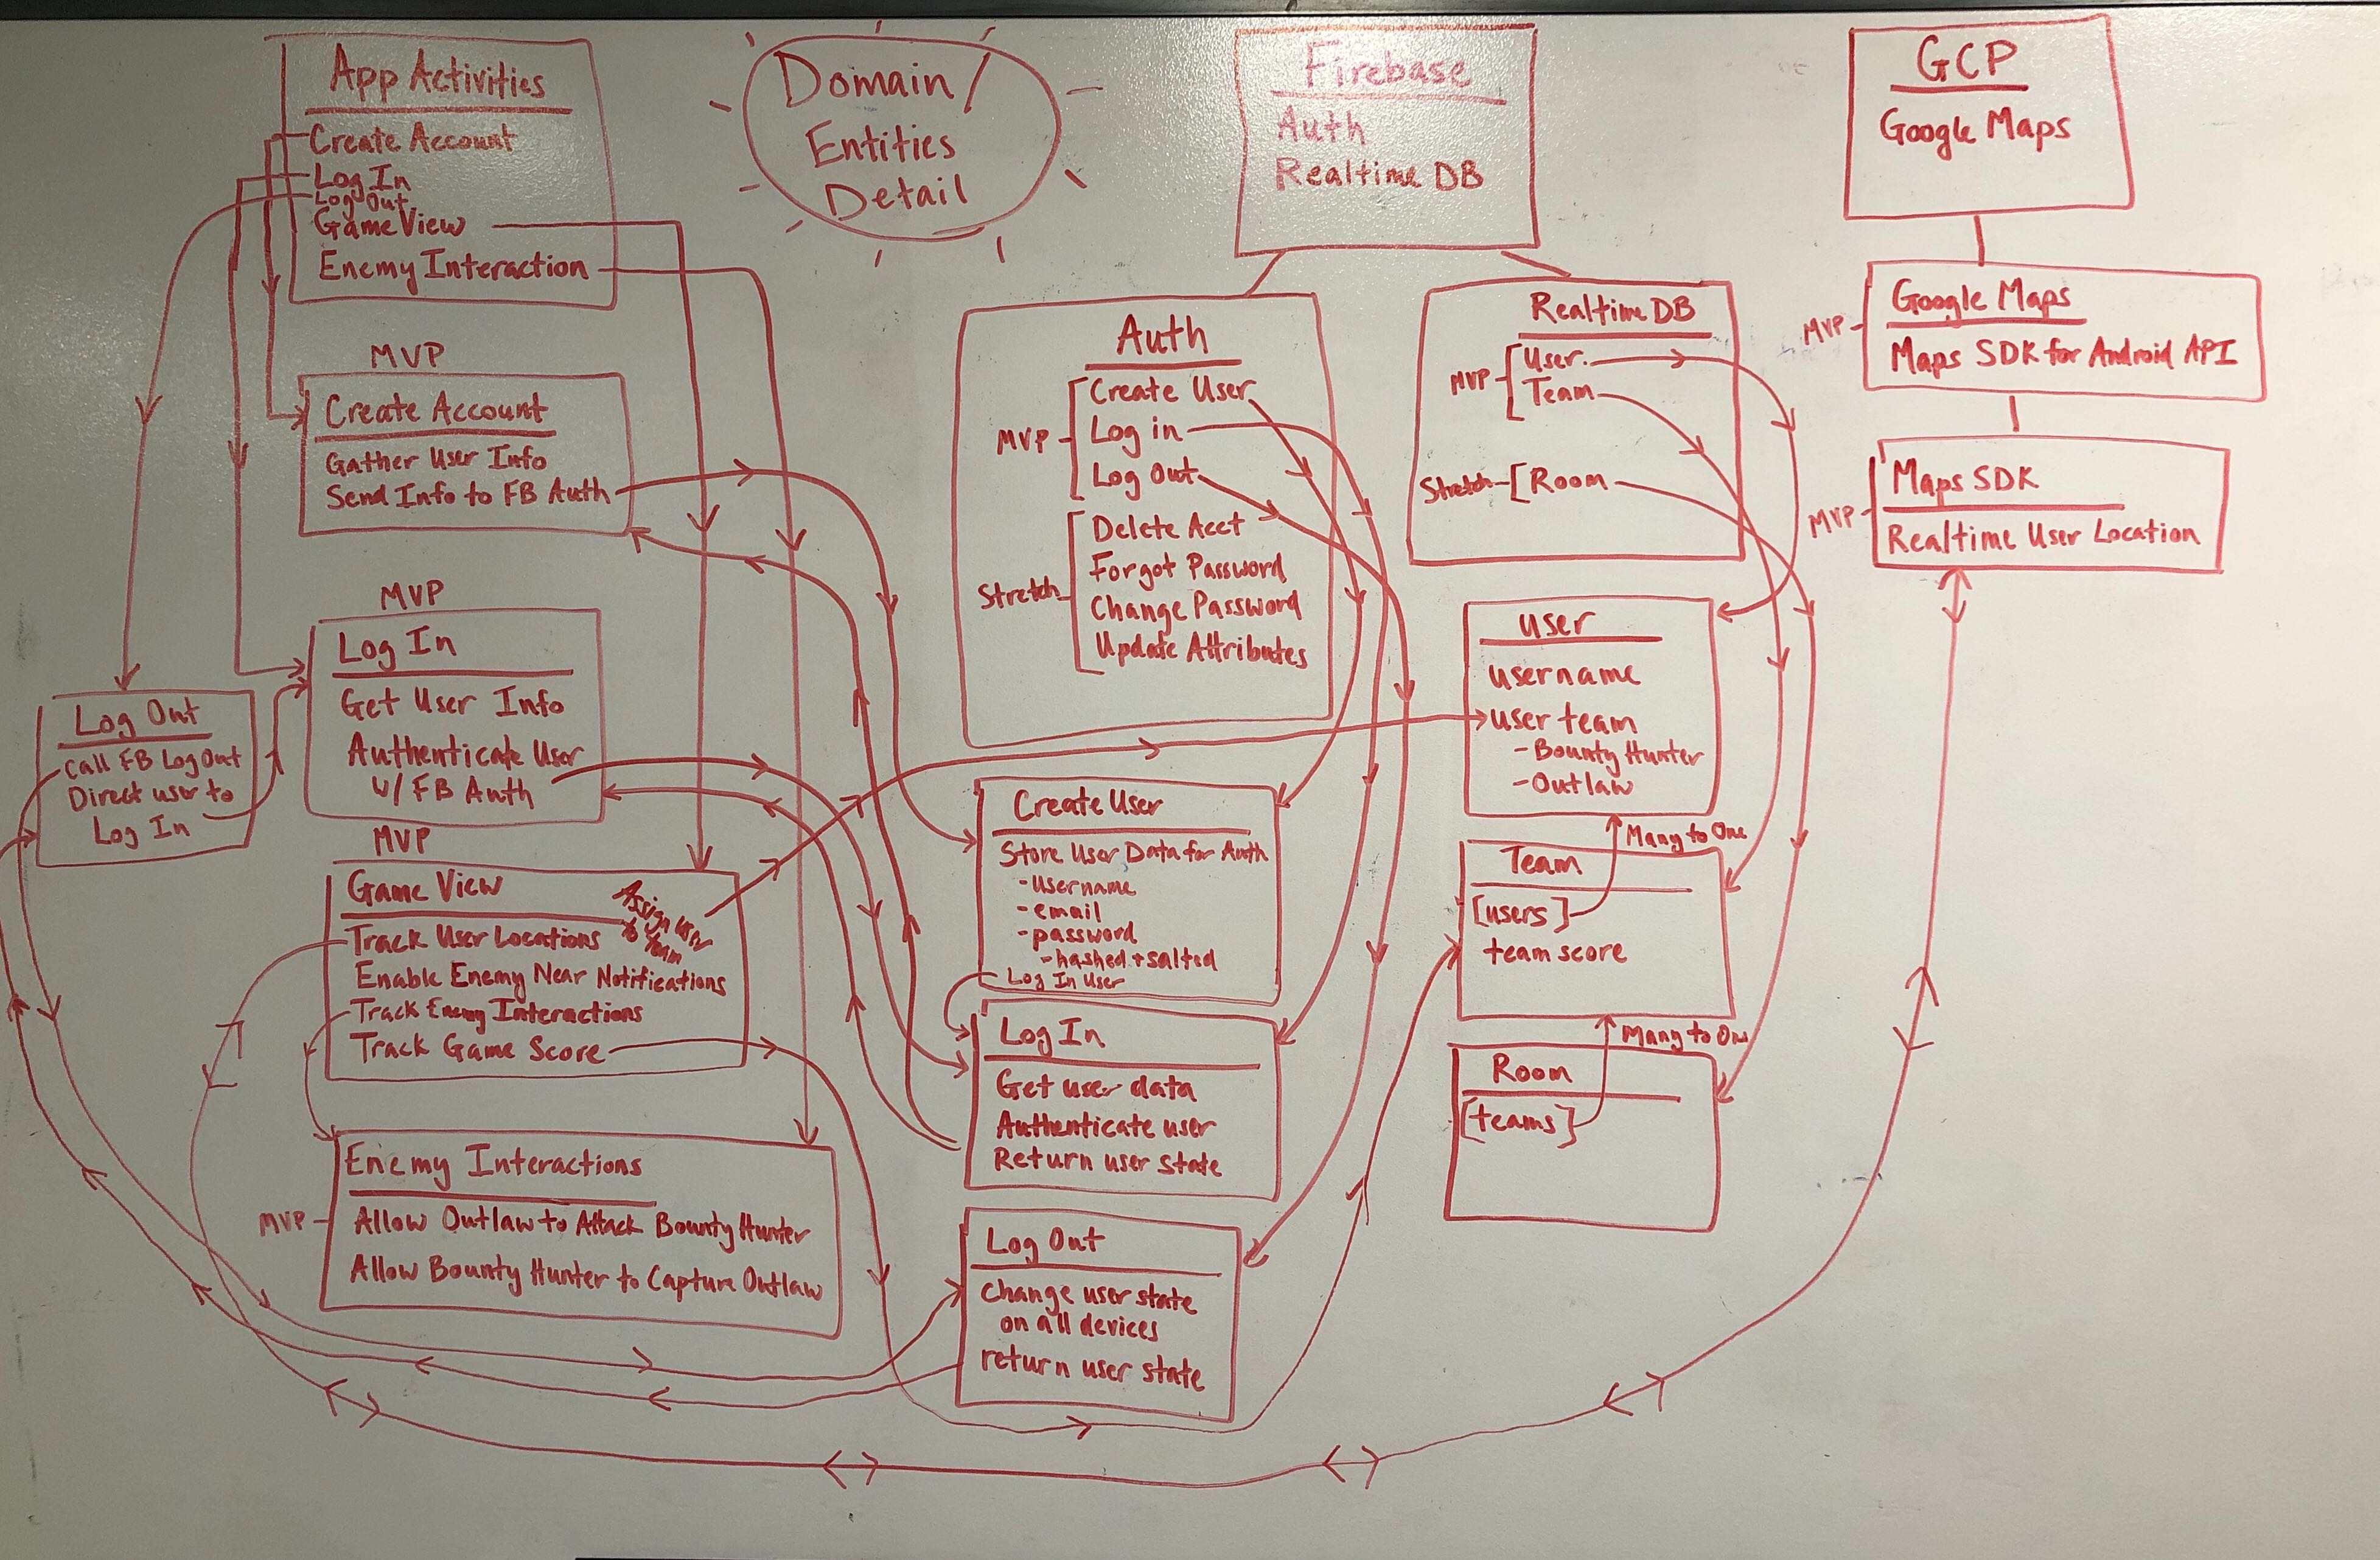 App Activities
Create Account
Log In
Log Out
Game View
Enemy Interaction
Domain/
Entities
Detail
Firebase
Auth
Realtime DB
GCP
Google Maps
MVP
Create Account
Gather User Info
Send Info to FB Auth
MVP
Log In
Get User Info
Authenticate User
w/ FB Auth
Log Out
Call FB Log Out
Direct user to
Log In
MVP
Game View
Assign user
to team
Track User Locations
Enable Enemy Near Notifications
Track Enemy Interactions
Track Game Score
MVP
Enemy Interactions
Allow Outlaw to Attack Bounty Hunter
Allow Bounty Hunter to Capture Outlaw
Auth
MVP
Create User
Log in
Log Out
Stretch
Delete Acct
Forgot Password
Change Password
Update Attributes
Create User
Store User Data for Auth
- username
- email
- password
- hashed + salted
Log In User
Log In
Get user data
Authenticate user
Return user state
Log Out
change user state
on all devices
return user state
Realtime DB
MVP
User
Team
Stretch
[Room
User
username
user team
- Bounty Hunter
- Outlaw
Many to One
Team
[users]
team score
Many to One
Room
[teams]
MVP
Google Maps
Maps SDK for Android API
MVP
Maps SDK
Realtime User Location